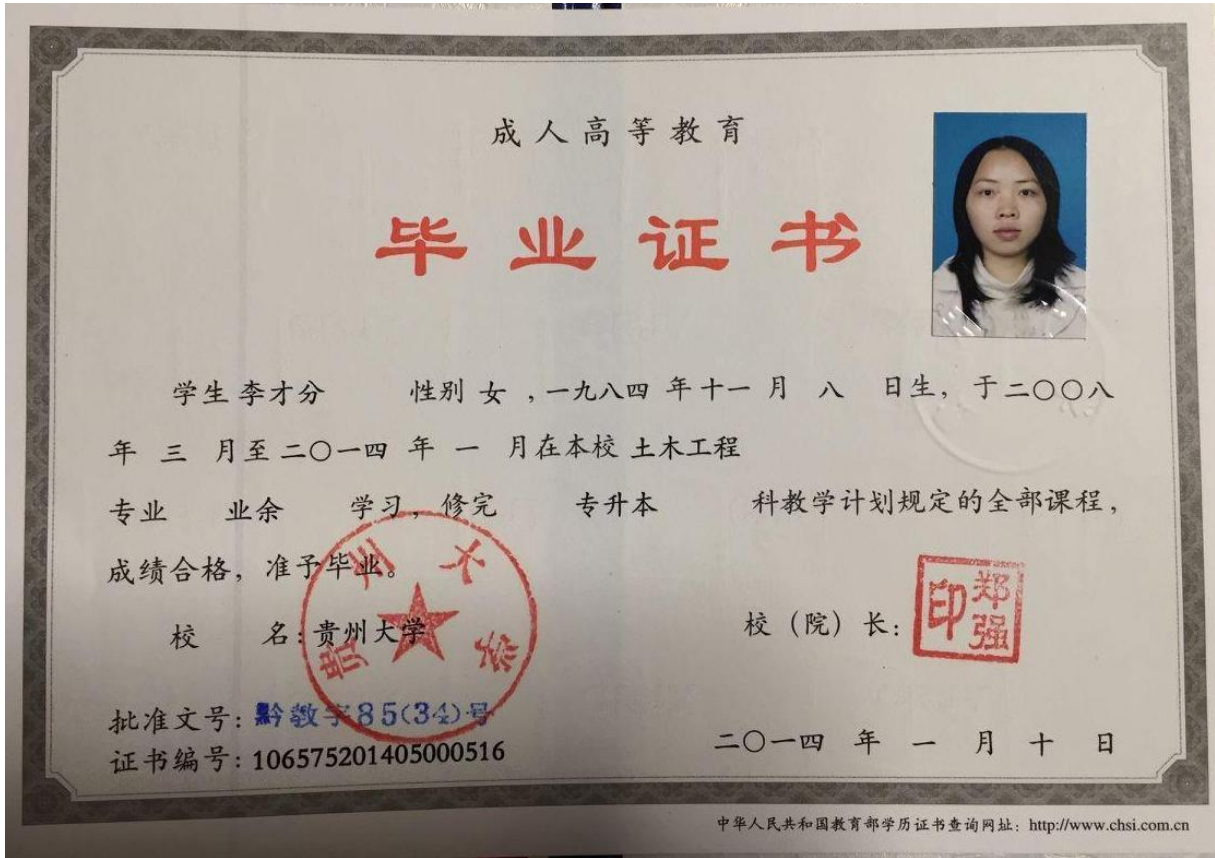 成人高等教育
毕业证书
学生 李才分 性别 女 ,一九八四 年 十一 月 八 日生, 于二〇〇八
年 三 月至 二〇一四 年 一 月在本校 土木工程
专业 业余 学习, 修完 专升本 科教学计划规定的全部课程,
成绩合格, 准予毕业。
校 名: 贵州大学
贵州大学
校 (院) 长:
郑强印
批准文号: 黔教字85(34)号
证书编号: 106575201405000516
二〇一四 年 一 月 十 日
中华人民共和国教育部学历证书查询网址: http://www.chsi.com.cn